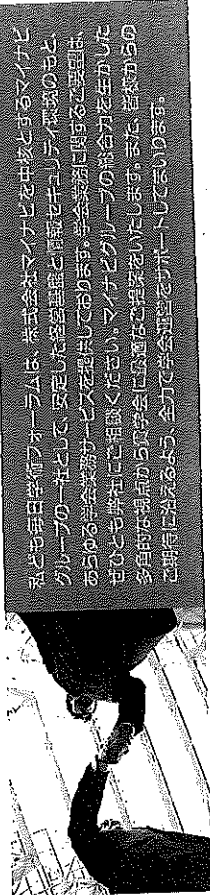 私ども毎日学術フォーラムは、株式会社マイナビを中核とするマイナビ
グループの一社として、安定した経営基盤と情報セキュリティ認識のもと、
あらゆる学会業務サービスを提供しております。学会業務に関するご要望は、
ぜひとも弊社にご相談ください。マイナビグループの総合力を生かした
多角的な視点から貴学会に最適なご提案をいたします。また、皆様からの
ご期待に沿えるよう、全力で学会運営をサポートしてまいります。